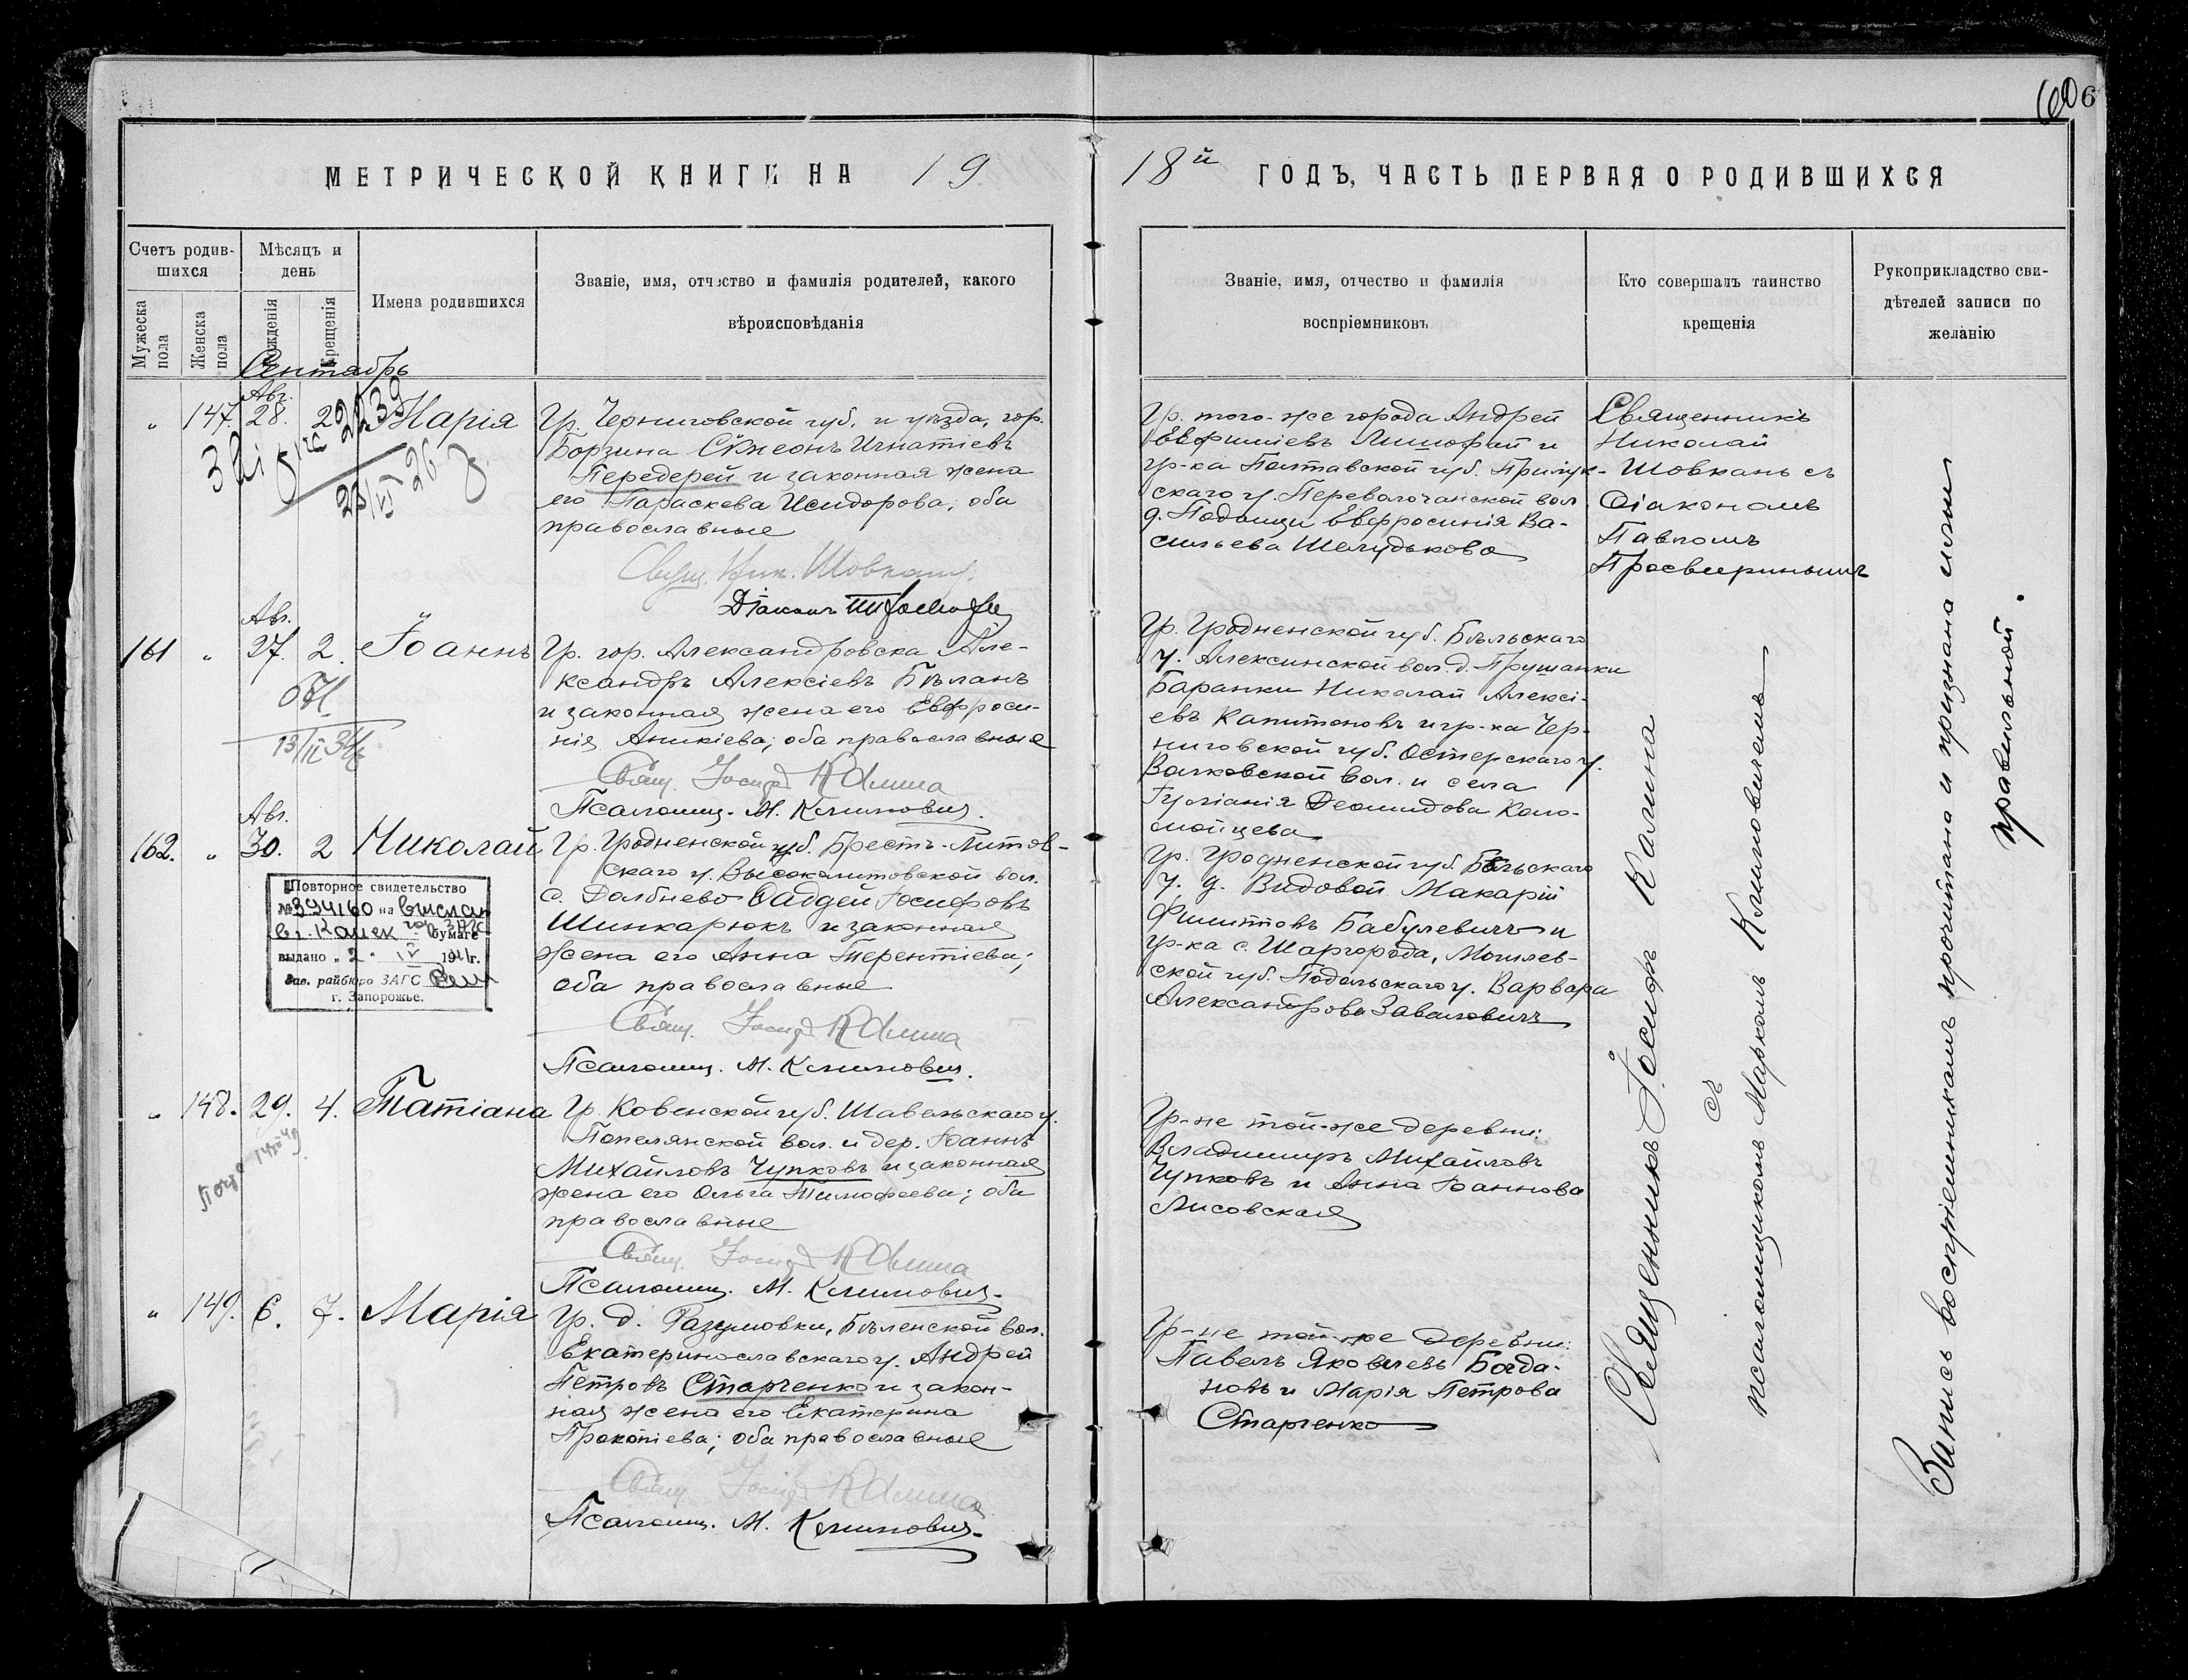 606
МЕТРИЧЕСКОЙ КНИГИ НА 19
18й ГОДЪ, ЧАСТЬ ПЕРВАЯ О РОДИВШИХСЯ
Счетъ родив-
шихся
Мужеска пола
Женска пола
Мѣсяцъ и
день
Рожденія
Крещенія
Имена родившихся
Званіе, имя, отчество и фамилія родителей, какого
вѣроисповѣданія
Званіе, имя, отчество и фамилія
воспріемниковъ
Кто совершалъ таинство
крещенія
Рукоприкладство сви-
дѣтелей записи по
желанію
Сентябрь
Авг.
" 147. 28. 29 Марія
Гр. Черниговской губ. и уѣзда, гор.
Борзина Сѵмеонъ Игнатіевъ
Передерей и законная жена
его Параскева Исидорова; оба
православные
Свящ. Ник. Шовкань.
Діаконъ
Гр. того-же города Андрей
Евфиміевъ и
гр-ка Полтавской губ. Прилук-
скаго у. Переволочанской вол.
д. Евфросинія Ва-
сильева Шелудькова
Священникъ
Николай
Шовкань съ
діакономъ
Павломъ
Просвиринымъ
Авг.
161 " 27. 2. Іоаннъ
Гр. гор. Александровска Але-
ксандръ Алексіевъ Бѣланъ
и законная жена его Евфроси-
нія Аникіева; оба православные
Свящ. Іосифъ Калина
Псаломщ. М. Климович.
Гр. Гродненской губ. Бѣльскаго
у. Алексинской вол. д. Грушанки
Баранки Николай Алексі-
евъ Капитоновъ и гр-ка Чер-
ниговской губ. Остерскаго у.
вол. и села
Іуліанія Деомидова Коло-
мойцева
Авг.
162. " 30. 2 Николай
Гр. Гродненской губ. Брестъ-Литов-
скаго у. Высоколитовской вол.
с. Долбнево Фаддей Іосифовъ
Шинкарюкъ и законная
жена его Анна Терентіева;
оба православные
Свящ. Іосифъ Калина
Псаломщ. М. Климович.
Гр. Гродненской губ. Бѣльскаго
у. д. Видовой Макарій
Филипповъ Бабулевичъ и
гр-ка с. Шаргорода, Могилев-
ской губ. Подольскаго у. Варвара
Александрова Заваловичъ
Повторное свидетельство
№ 394160 на
бумаге
выдано „2" IV 19 г.
Зав. райбюро ЗАГС
г. Запорожье.
" 148. 29. 4. Татіана
Гр. Ковенской губ. Шавельскаго у.
Попелянской вол. и дер. Іоаннъ
Михайловъ Чупковъ и законная
жена его Ольга Тимофеева; оба
православные
Свящ. Іосифъ Калина
Псаломщ. М. Климович.
Гр-не той-же деревни:
Владимиръ Михайловъ
Чупковъ и Анна Іоаннова
Лисовская
" 149. 6. 7. Марія
Гр. д. Разумовки, Бѣленской вол.
Екатеринославскаго у. Андрей
Петровъ Старченко и закон-
ная жена его Екатерина
Прокопіева; оба православные
Свящ. Іосифъ Калина
Псаломщ. М. Климович.
Гр-не той-же деревни:
Павелъ Яковлевъ Богда-
новъ и Марія Петрова
Старченко
Священникъ Іосифъ Калина
съ
псаломщикомъ Маркомъ Климовичемъ
Запись воспріемникамъ прочитана и признана ими
правильной.